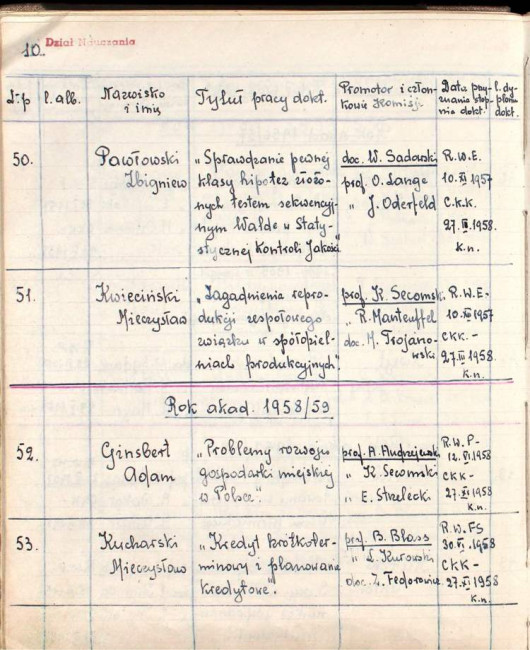 10.
Dział Nauczania
l.p l. alb. Nazwisko i imię Tytuł pracy dokt. Promotor i członkowie Komisji Data przyznania stopnia dokt. l. dyplomu dokt.
50.
Pawłowski
Zbigniew
„Sprawdzanie pewnej
klasy hipotez złożo-
nych testem sekwencyj-
nym Walda w Staty-
stycznej Kontroli Jakości
doc. W. Sadowski
prof. O. Lange
" J. Oderfeld
R.W.E.
10.XI 1957
C.K.K.
27.IX.1958.
k.n.
51.
Kwieciński
Mieczysław
„Zagadnienia repro-
dukcji zespołowego
związku w spółdziel-
niach produkcyjnych".
prof. K. Secomski
" R. Manteuffel
doc. M. Trojano-
wski
R.W.E-
10.XI 1957
CKK.-
27.IX 1958.
k.n.
Rok akad. 1958/59
52.
Ginsbert
Adam
„Problemy rozwoju
gospodarki miejskiej
w Polsce".
prof. A. Andrzejewski
" K. Secomski
" E. Strzelecki
R.W.P-
12.VI 1958
CKK-
27.IX 1958
k.n.
53.
Kucharski
Mieczysław
„Kredyt krótkoter-
minowy i planowanie
kredytowe".
prof. B. Blass
" L. Kurowski
doc. Z. Fedorowicz
R.W.FS
30.VI.1958
CKK-
27.IX 1958
k.n.